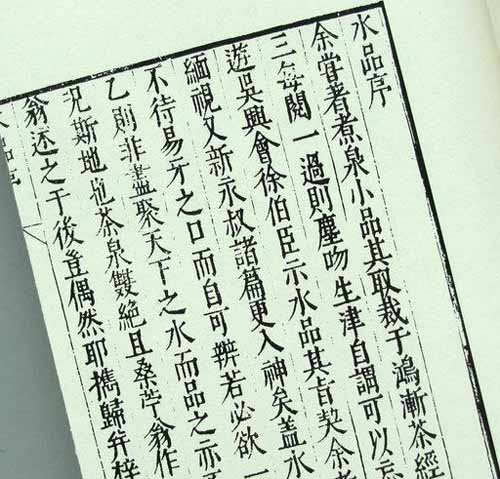 水品序
余嘗著煮泉小品其取裁于鴻漸茶經
三每閱一過則塵吻生津自謂可以忘
遊吳興會徐伯臣示水品其旨契余者
緬視又新永叔諸篇更入神矣蓋水
不待易牙之口而自可辨若必欲一
乙則非盡聚天下之水而品之亦
況斯地也茶泉雙絕且桑苧翁作
翁述之于後豈偶然耶攜歸并梓
水品序 一